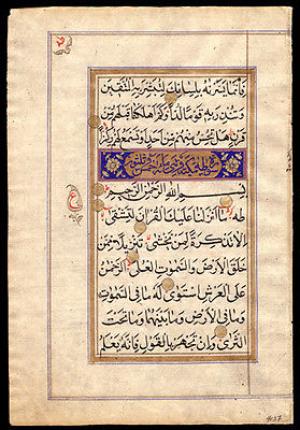 فَإِنَّمَا يَسَّرْنٰهُ بِلِسَانِكَ لِتُبَشِّرَ بِهِ الْمُتَّقِينَ
وَتُنْذِرَ بِهِ قَوْمًا لُدًّا وَكَمْ أَهْلَكْنَا قَبْلَهُمْ مِنْ
قَرْنٍ هَلْ تُحِسُّ مِنْهُمْ مِنْ أَحَدٍ أَوْ تَسْمَعُ لَهُمْ رِكْزًا
بِسْمِ اللهِ الرَّحْمٰنِ الرَّحِيمِ
طه مَا أَنْزَلْنَا عَلَيْكَ الْقُرْاٰنَ لِتَشْقٰى
إِلَّا تَذْكِرَةً لِمَنْ يَخْشٰى تَنْزِيلًا مِمَّنْ
خَلَقَ الْأَرْضَ وَالسَّمٰوٰتِ الْعُلٰى الرَّحْمٰنُ
عَلَى الْعَرْشِ اسْتَوٰى لَهُ مَا فِى السَّمٰوٰتِ
وَمَا فِى الْأَرْضِ وَمَا بَيْنَهُمَا وَمَا تَحْتَ
الثَّرٰى وَإِنْ تَجْهَرْ بِالْقَوْلِ فَإِنَّهُ يَعْلَمُ